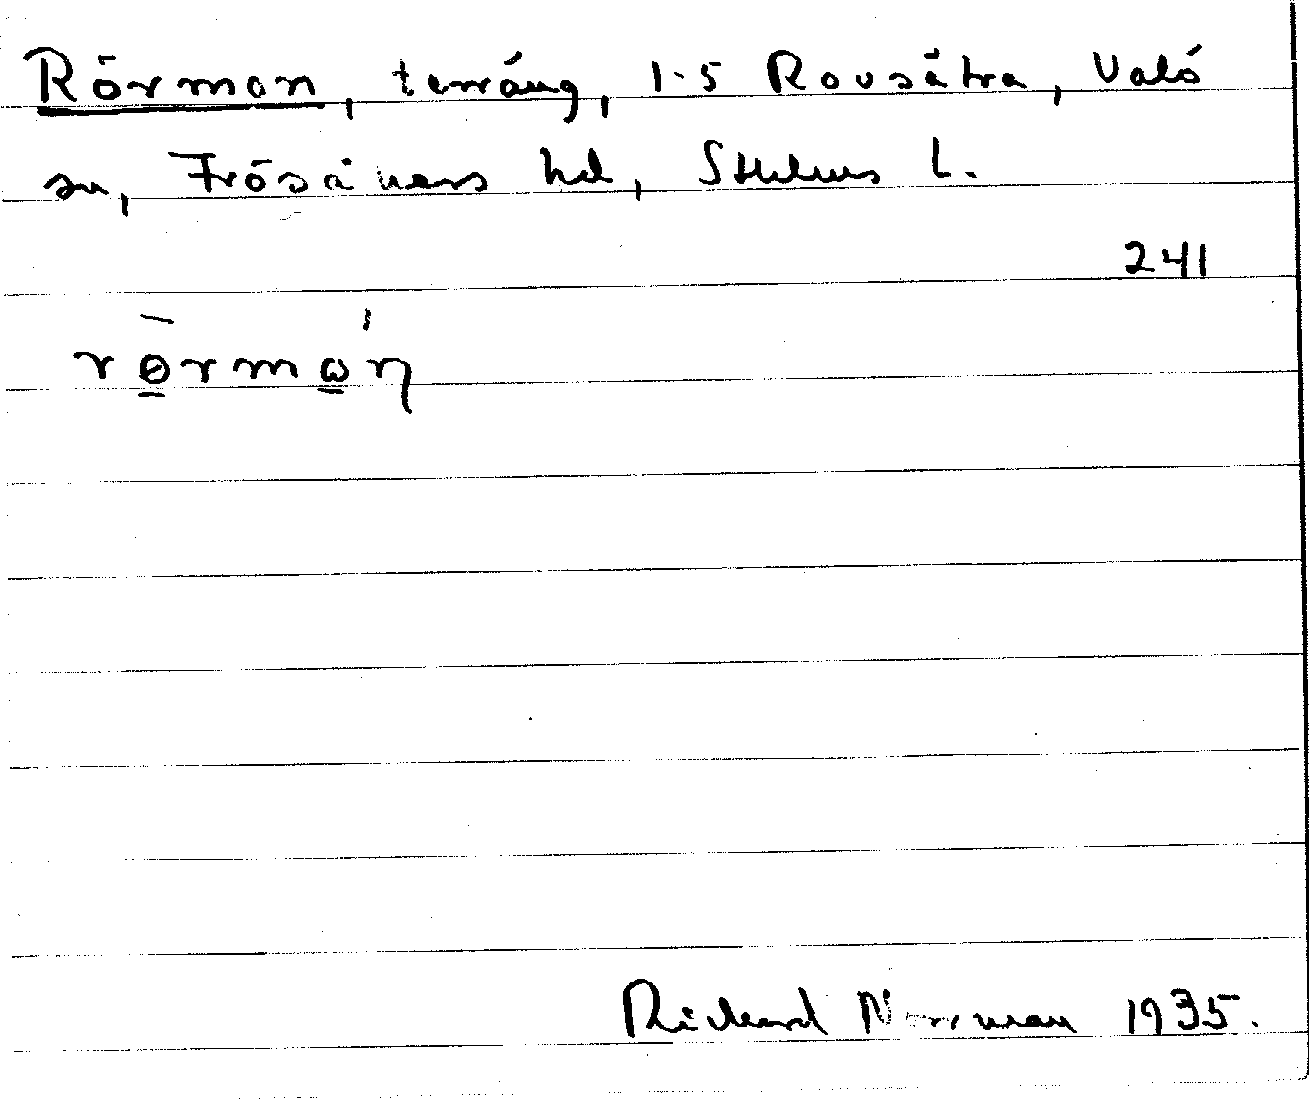 Rörmon, terräng, 1-5 Rovsätra, Valö
sn, Frösåkers hd, Sthlms l.
241
rörmon
Rickard Norrman 1935.